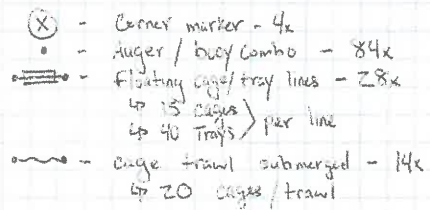 (X) - Corner marker - 4x
- Auger / buoy combo - 84x
- Floating cage/tray lines - 28x
↳ 15 cages
↳ 40 Trays } per line
- cage trawl submerged - 14x
↳ 20 cages / trawl